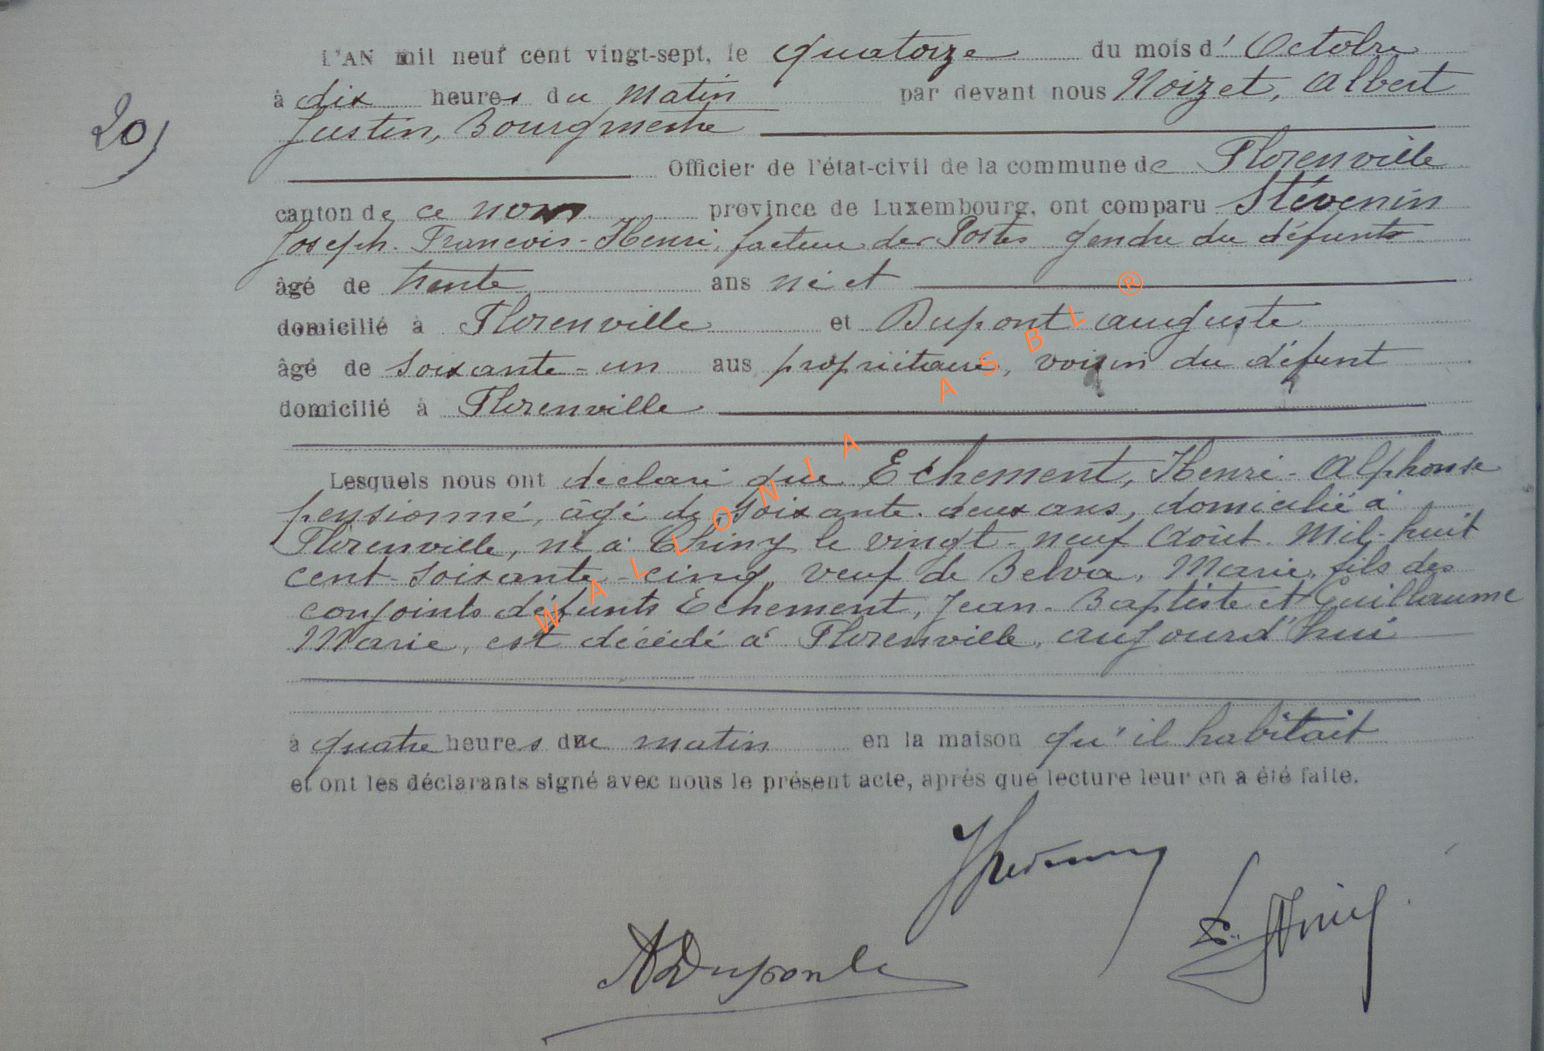 L'AN mil neuf cent vingt-sept, le quatorze du mois d' Octobre
20)
à dix heures du matin par devant nous Noizet, Albert
Justin, Bourgmestre
Officier de l'état-civil de la commune de Florenville
canton de ce nom province de Luxembourg, ont comparu Stévenin
Joseph-François-Henri, facteur des Postes gendre du défunts
âgé de trente ans né et
domicilié à Florenville et Dupont Auguste
âgé de soixante-un ans propriétaire, voisin du défunt
domicilié à Florenville
Lesquels nous ont déclaré que Echement, Henri-Alphonse
pensionné, âgé de soixante-deux ans, domicilié à
Florenville, né à Chiny le vingt-neuf Août Mil-huit
cent-soixante-cinq, veuf de Belva, Marie, fils des
conjoints défunts Echement, Jean-Baptiste et Guillaume
Marie, est décédé à Florenville, aujourd'hui
à quatre heures du matin en la maison qu'il habitait
et ont les déclarants signé avec nous le présent acte, après que lecture leur en a été faite.
ADupont
WALLONIA ASBL ®